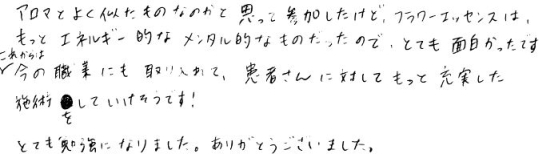 アロマとよく似たものなのかと思って参加したけど、フラワーエッセンスは、
もっとエネルギー的なメンタル的なものだったので、とても面白かったです
これからは
今の職業にも取り入れて、患者さんに対してもっと充実した
施術をしていけそうです!
とても勉強になりました。ありがとうございました。